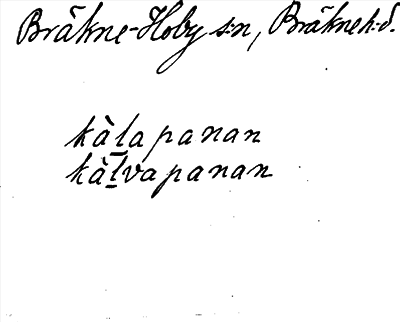 Bräkne-Hoby s:n, Bräkne h:d.
kàḻapanan
kàḻvapanan